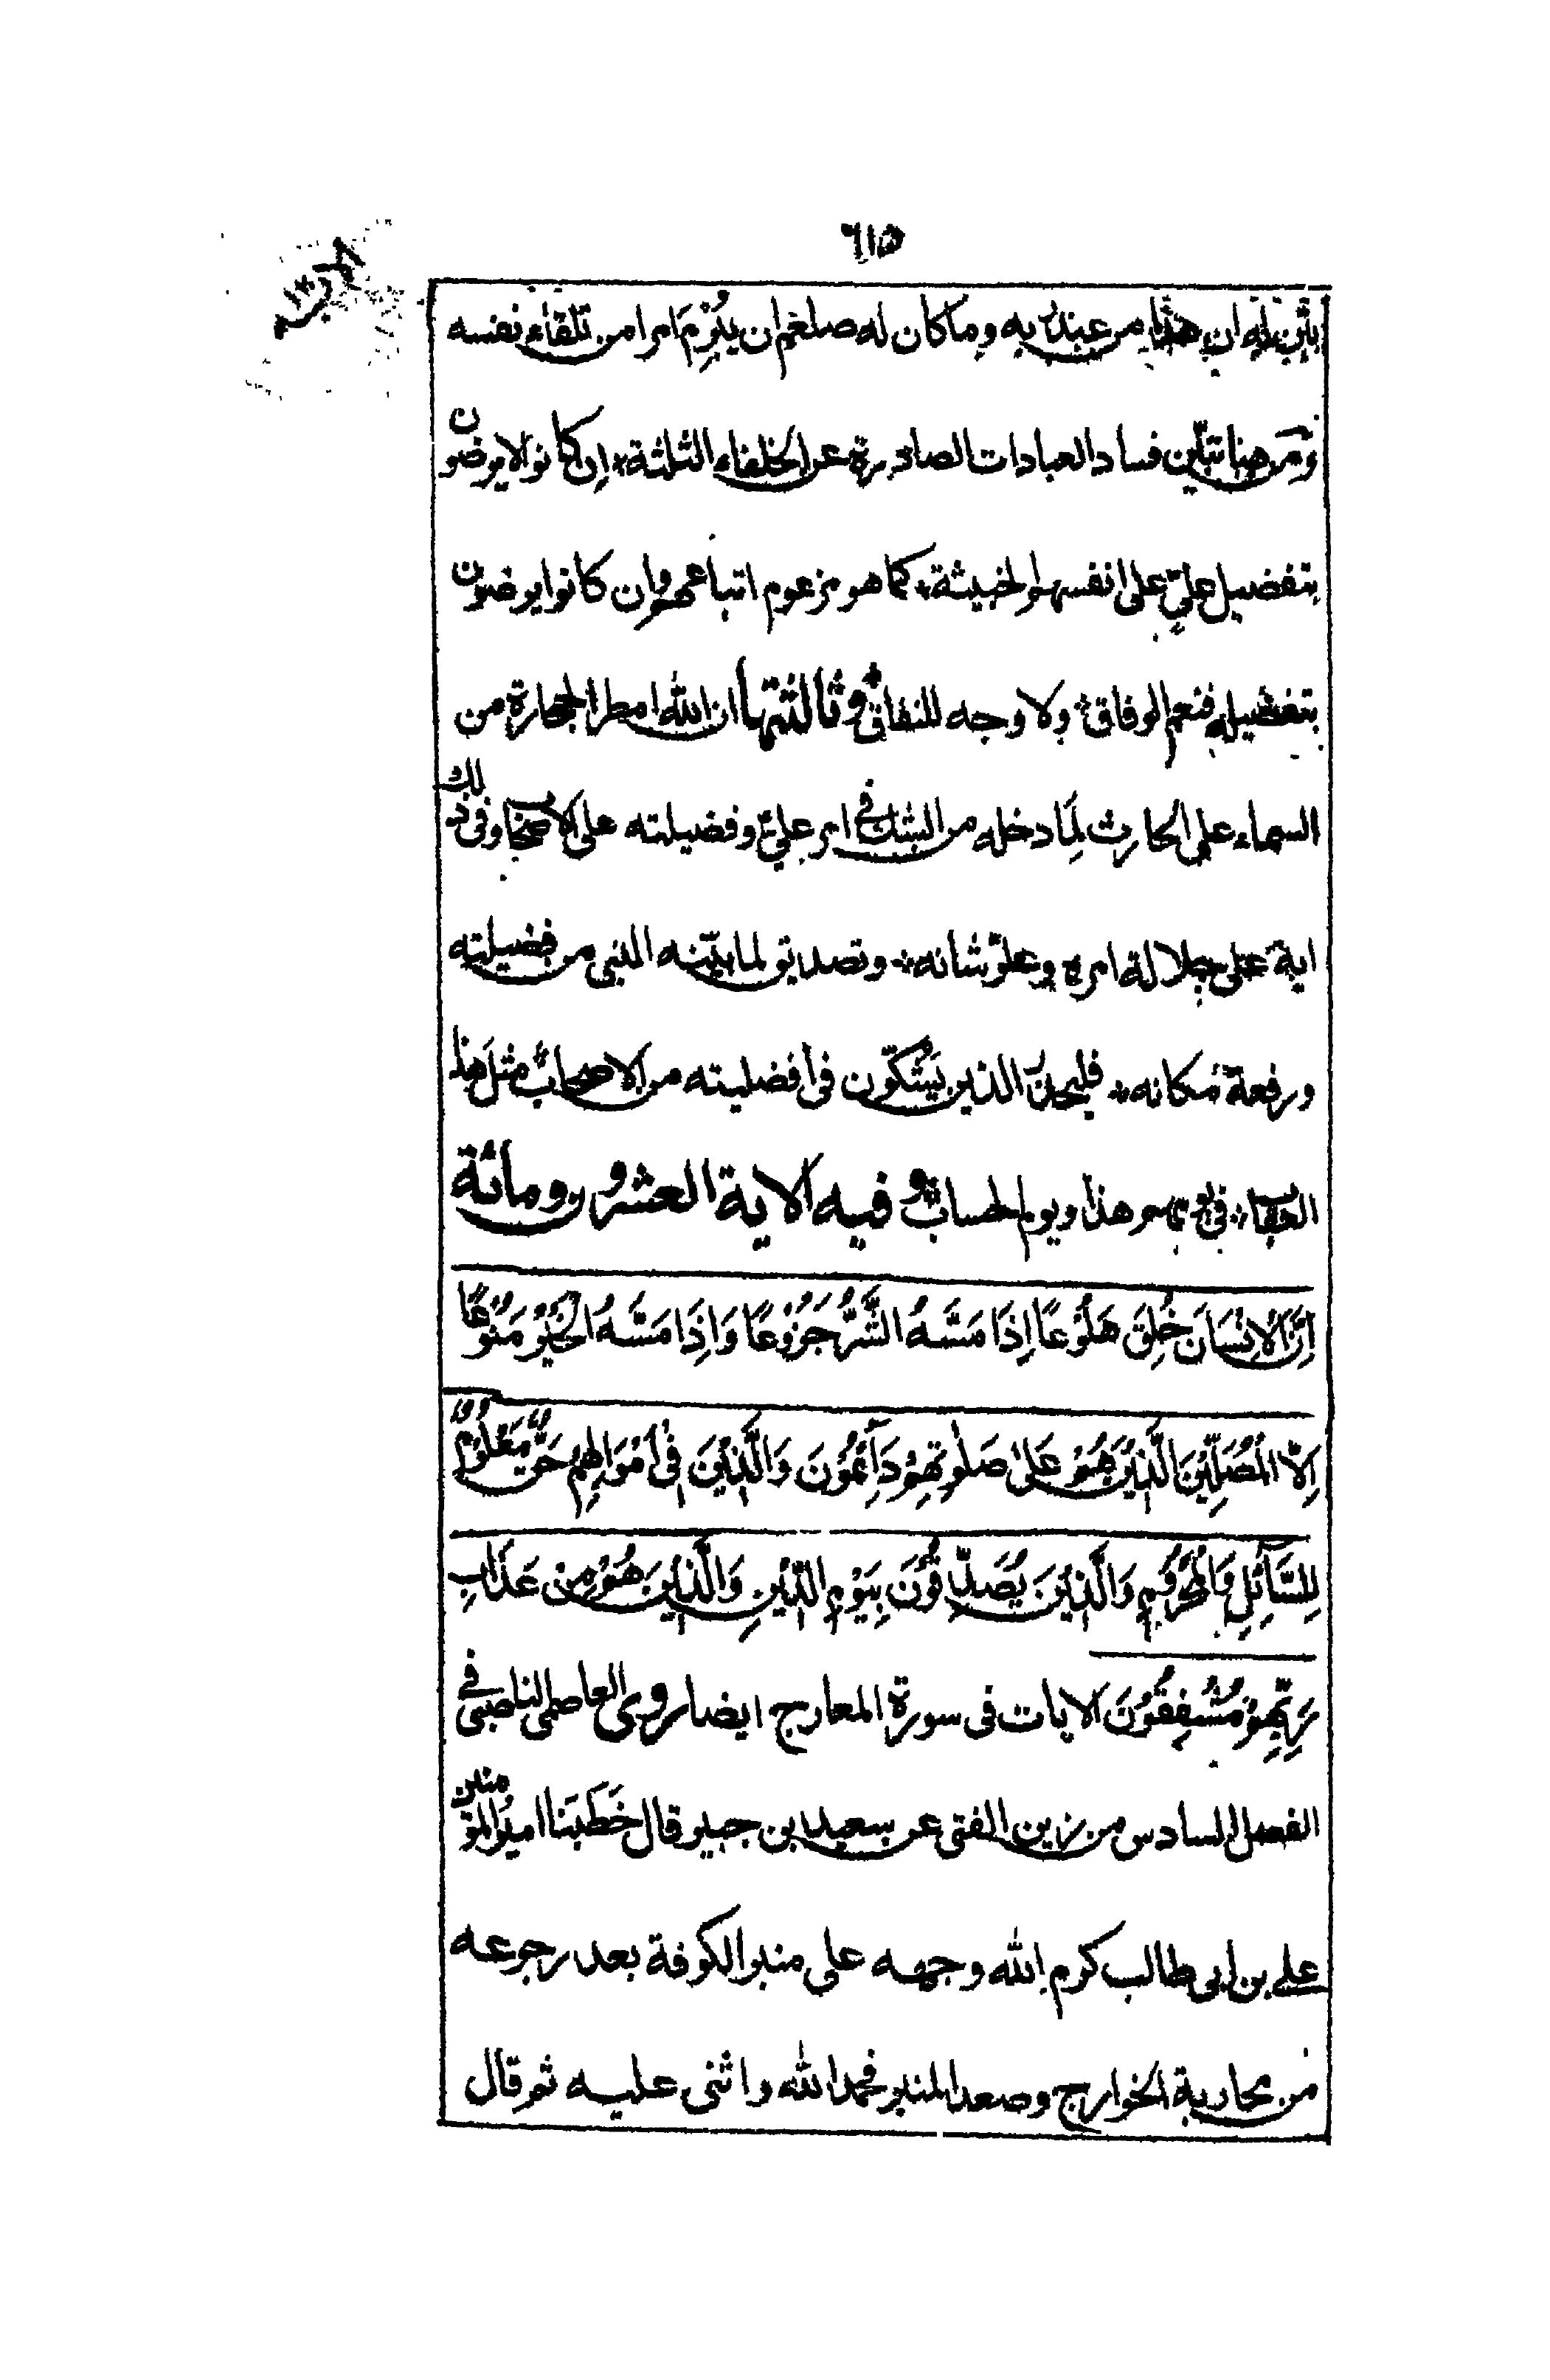 ٦١٥
بيّن له ان هذا من عند ربه وما كان له صلعم ان يبرم امرا من تلقاء نفسه
ومن هنا تبيّن فساد العبادات الصادرة عن الخلفاء الثلثة * ان كانوا لا يرضون
بتفضيل عليّ على انفسهم الخبيثة * كما هو مزعوم اتباعهم وان كانوا يرضون
بتفضيله فنعم الوفاق * ولا وجه للنفاق * وثالثتها ان الله امطر الحجارة من
السماء على الحارث لما دخله من الشك في امر عليّ وفضيلته على الاصحاب وفي ذلك
اية على جلالة امره وعلوّ شانه * وتصديق لما بيّنه النبي من فضيلته
ورفعة مكانه * فليحذر الذين يشكّون في افضليته من الاصحاب * مثل هذا
العقاب * في يومهم هذا ويوم الحساب * وفيه الاية العشرون ومائة
اِنَّ الْاِنْسَانَ خُلِقَ هَلُوْعًا اِذَا مَسَّهُ الشَّرُّ جَزُوْعًا وَاِذَا مَسَّهُ الْخَيْرُ مَنُوْعًا
اِلَّا الْمُصَلِّيْنَ الَّذِيْنَ هُمْ عَلٰى صَلٰوتِهِمْ دَآئِمُوْنَ وَالَّذِيْنَ فِيْ اَمْوَالِهِمْ حَقٌّ مَعْلُوْمٌ
لِلسَّآئِلِ وَالْمَحْرُوْمِ وَالَّذِيْنَ يُصَدِّقُوْنَ بِيَوْمِ الدِّيْنِ وَالَّذِيْنَ هُمْ مِنْ عَذَابِ
رَبِّهِمْ مُشْفِقُوْنَ الايات في سورة المعارج ايضا روى العاصمي الناصبي في
الفصل السادس من زين الفتى عن سعيد بن جبير قال خَطَبَنا امير المؤمنين
علي بن ابي طالب كرم الله وجهه على منبر الكوفة بعد رجوعه
من محاربة الخوارج وصعد المنبر فحمد الله واثنى عليه ثم قال